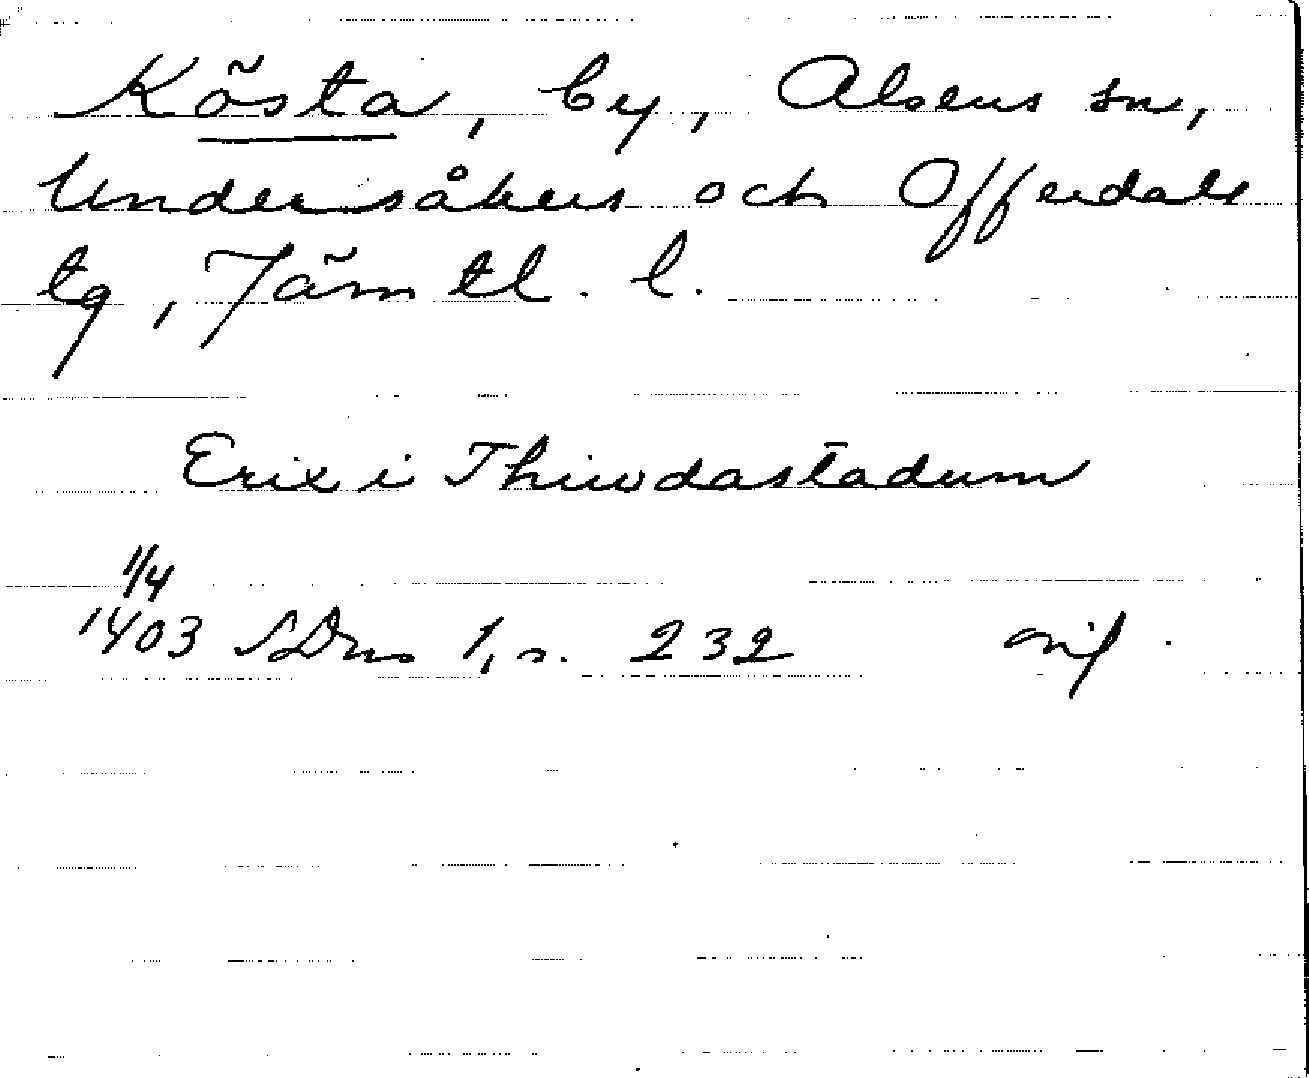 Kösta, by, Alsens sn,
Undersåkers och Offerdals
tg, Jämtl. l.
Erix i Thiwdastadum
1/4
1403 SDns 1, s. 232 orig.